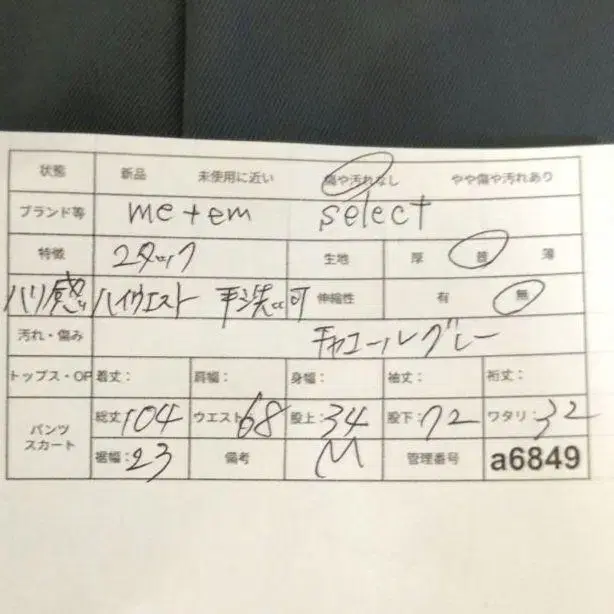 状態 新品 未使用に近い 傷や汚れなし やや傷や汚れあり
ブランド等 me+em select
特徴 2タック 生地 厚 普 薄
ハリ感 ハイウエスト 手洗い可 伸縮性 有 無
汚れ・傷み チャコールグレー
トップス・OP 着丈: 肩幅: 身幅: 袖丈: 裄丈:
パンツ スカート 総丈:104 ウエスト:68 股上:34 股下:72 ワタリ:32
裾幅:23 備考 M 管理番号 a6849